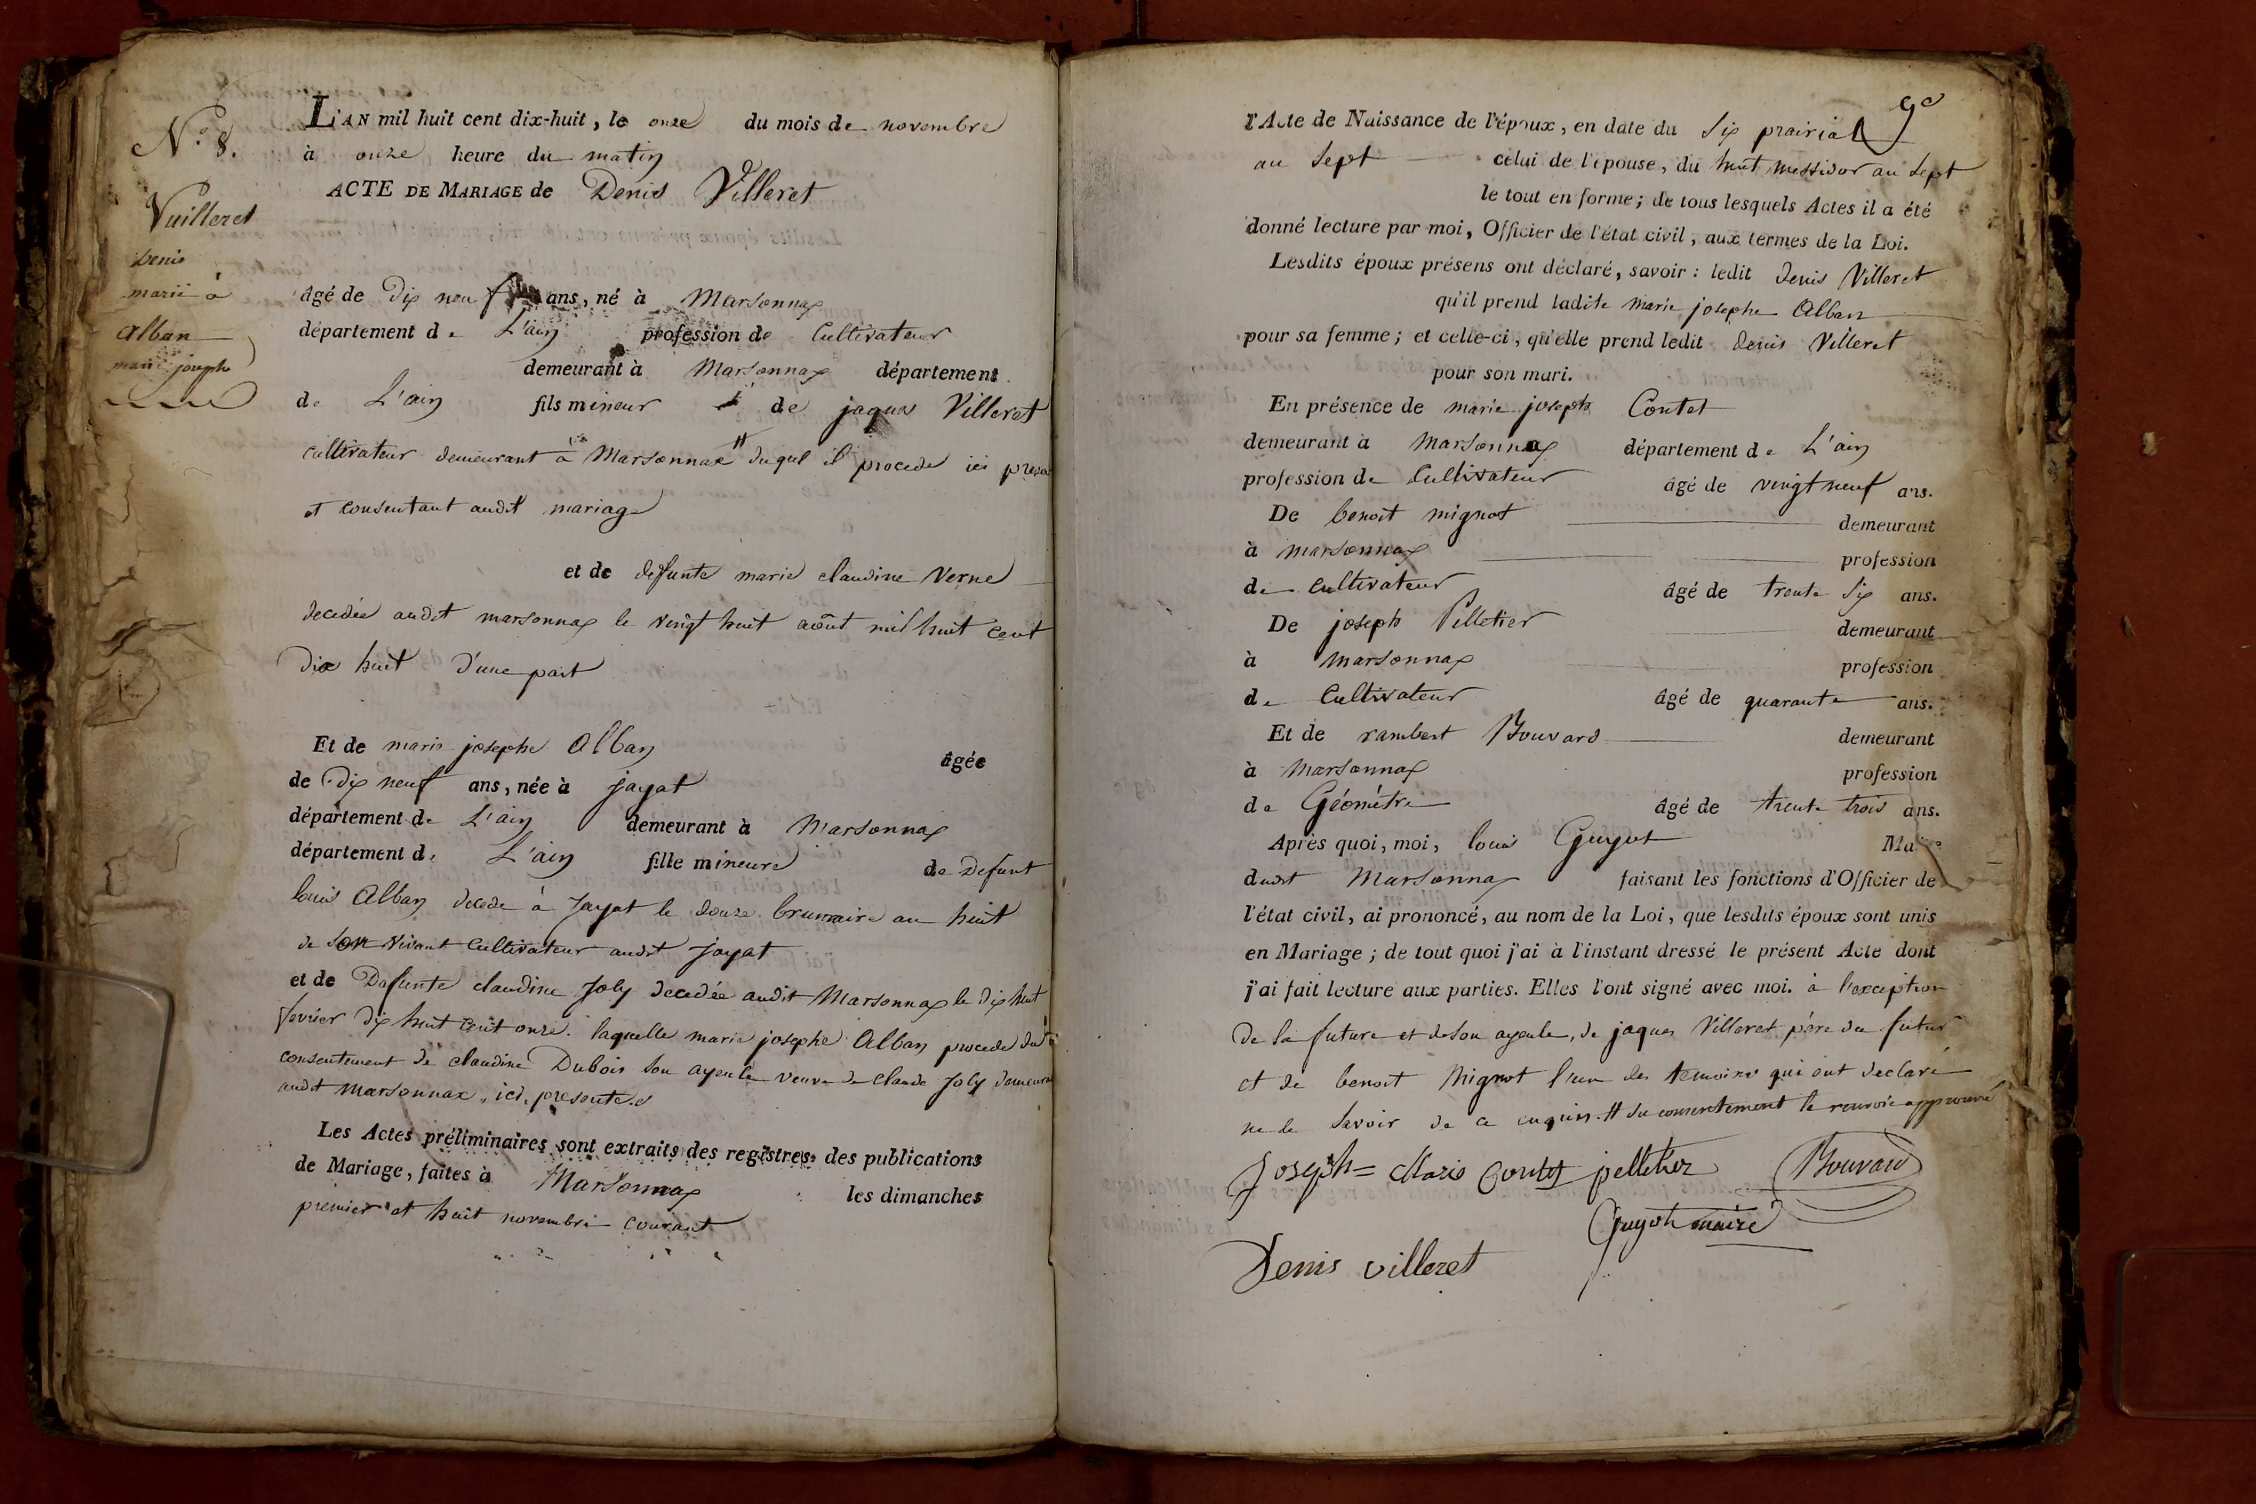 N.º 8.
Vuilleret
Denis
marié à
Alban
marie josephe
L'AN mil huit cent dix-huit, le onze du mois de novembre
à onze heure du matin
ACTE DE MARIAGE de Denis Villeret
âgé de Dix neuf ans, né à Marsonnax
département de L'ain profession de Cultivateur
demeurant à Marsonnax département
de L'ain fils mineur de jaques Villeret
cultivateur demeurant à Marsonnax # duquel il procede ici present
et consentant audit mariage
et de defunte marie claudine Verne
decedée audit marsonnax le vingt huit août mil huit cent
Dix huit d'une part
Et de marie josephe Alban âgée
de Dix neuf ans, née à jayat
département de L'ain demeurant à Marsonnax
département de L'ain fille mineure de Defunt
louis Alban decede à Jayat le douze brumaire an huit
de son vivant cultivateur audit Jayat
et de Defunte claudine Joly decedée audit Marsonnax le dix huit
fevrier dix huit cent onze. laquelle marie josephe Alban procede du
consentement de claudine Dubois son ayeule veuve de claude Joly demeurant
audit Marsonnax, ici presente.
Les Actes préliminaires sont extraits des registres des publications
de Mariage, faites à Marsonnax les dimanches
premier et huit novembre courant
9e
l'Acte de Naissance de l'époux, en date du six prairial
an sept celui de l'épouse, du huit messidor an sept
le tout en forme; de tous lesquels Actes il a été
donné lecture par moi, Officier de l'état civil, aux termes de la Loi.
Lesdits époux présens ont déclaré, savoir: ledit denis Villeret
qu'il prend ladite marie josephe Alban
pour sa femme; et celle-ci, qu'elle prend ledit denis Villeret
pour son mari.
En présence de marie joseph Contet
demeurant à Marsonnax département de L'ain
profession de Cultivateur âgé de vingt neuf ans.
De benoit mignot demeurant
à marsonnax profession
de cultivateur âgé de trente six ans.
De joseph Pelletier demeurant
à marsonnax profession
de Cultivateur âgé de quarante ans.
Et de rambert Bouvard demeurant
à Marsonnax profession
de Géométre âgé de trente trois ans.
Après quoi, moi, louis Guyot Maire
dudit Marsonnax faisant les fonctions d'Officier de
l'état civil, ai prononcé, au nom de la Loi, que lesdits époux sont unis
en Mariage; de tout quoi j'ai à l'instant dressé le présent Acte dont
j'ai fait lecture aux parties. Elles l'ont signé avec moi. à l'exception
de la future et de son ayeule, de jaques Villeret père du futur
et de benoit Mignot l'un des temoins qui ont declaré
ne le savoir de ce enquis. # du consentement le renvoi approuvé
Joseph = Marie Contet pelletier Bouvard
Guyot maire
Denis villeret